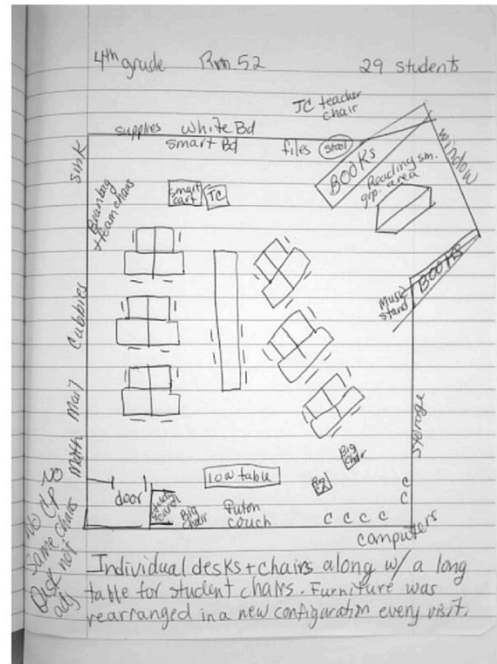 4th grade Rm. 52 29 students
TC teacher
chair
supplies White Bd
Smart Bd
files
Stool
BOOKS
window
Reading sm.
grp. area
Sink
Beanbag
+ team chairs
smart
cart
TC
BOOKS
Music
stand
Cubbies
Mail
Math
Storage
Big
chair
low table
door
Big
chair
Futon
couch
C
C
C C C C
computers
Same chairs
Desk not
adj
Individual desks + chairs along w/ a long
table for student chairs. Furniture was
rearranged in a new configuration every visit.